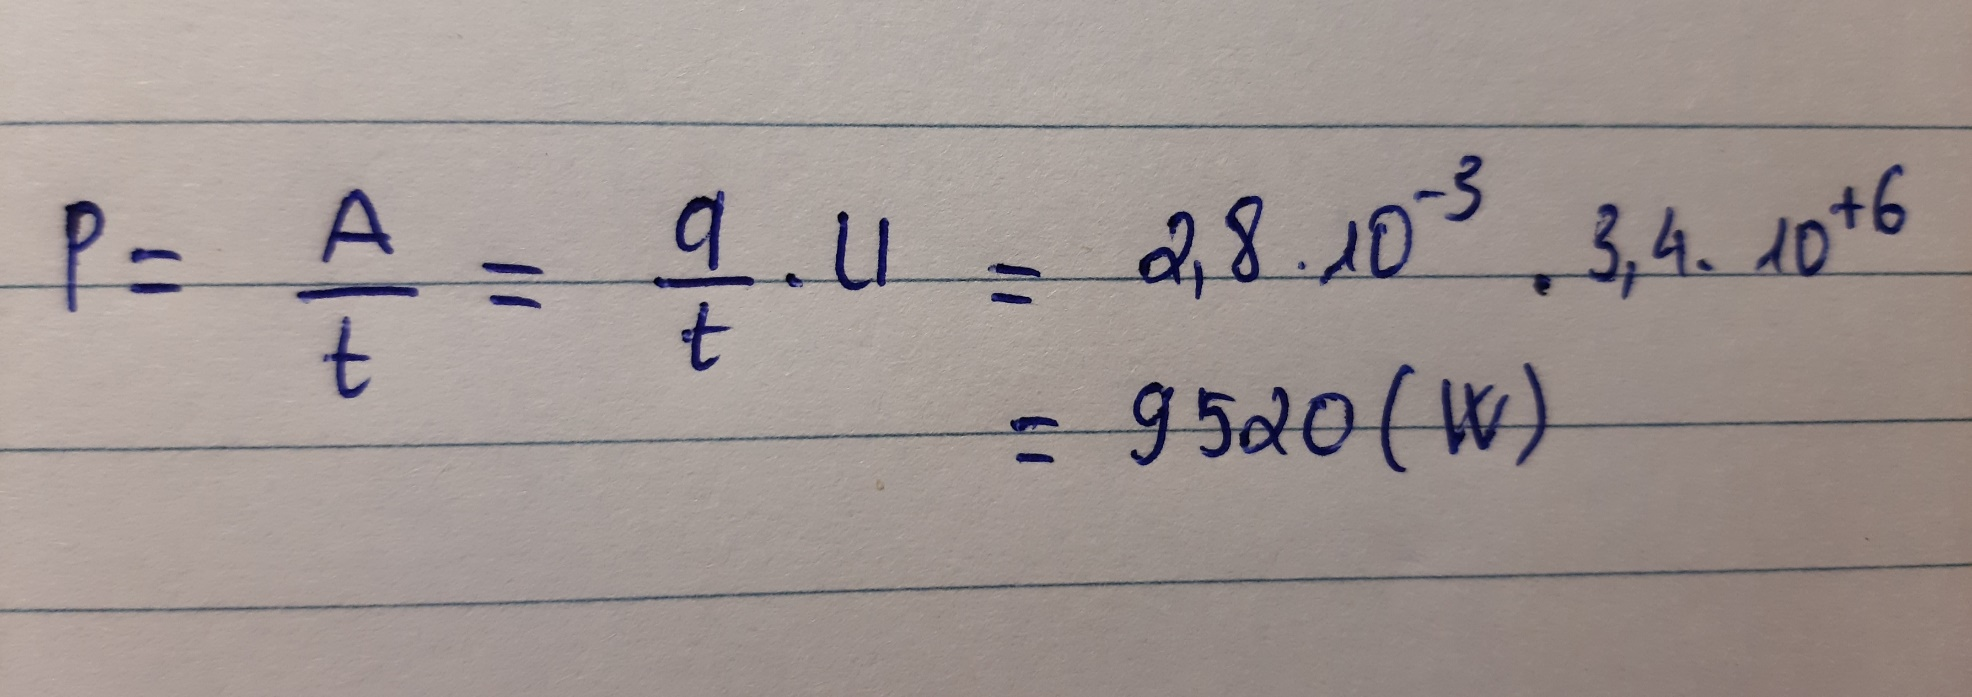 P = A/t = q/t . U = 2,8 . 10^-3 . 3,4 . 10^+6
= 9520 (W)